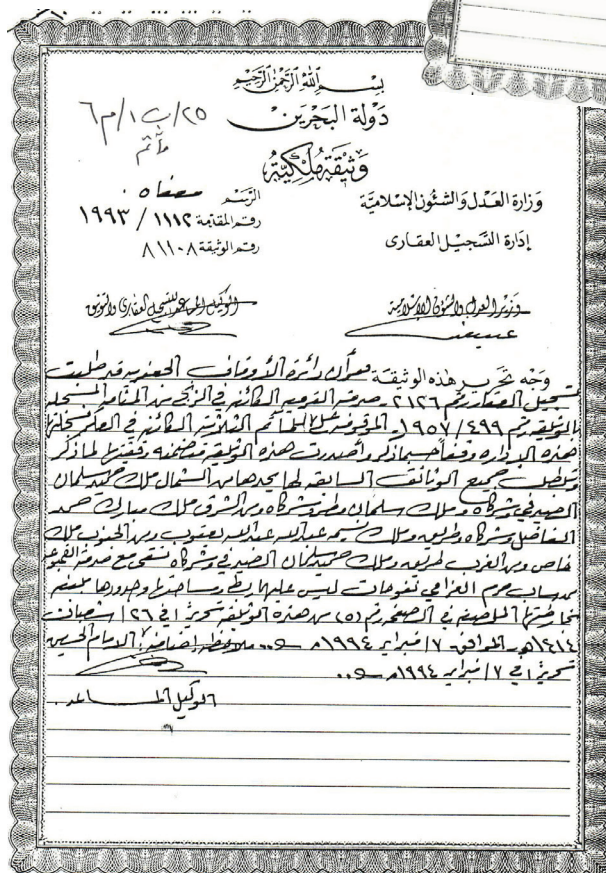 بسم الله الرحمن الرحيم
دولة البحرين
٢٥/ب١/م٦
مأتم
وثيقة ملكية
وزارة العدل والشئون الإسلامية
إدارة التسجيل العقاري
الرسم معفاه
رقم المقدمة ١١١٢ / ١٩٩٣
رقم الوثيقة ٨١١٠٨
وزير العدل والشئون الإسلامية
الوكيل المساعد للتسجيل العقاري والتوثيق
وجه تحرير هذه الوثيقة هو أن دائرة الأوقاف الجعفرية قد طلبت
تسجيل العقار رقم ٢١٢٦ صدقة الكائن في من المنامة المسجلة
بالوثيقة رقم ٤٩٩/١٩٥٧ والموقوفة على المآتم الثلاثة الكائنة في
هذه الإدارة وقفاً حسبما ذكر وأصدرت هذه الوثيقة متضمنة وقفيتها لما ذكر
وتبطل جميع الوثائق السابقة لها يحدها من الشمال ملك حميد سلمان
الصيرفي وشركاه وملك سلمان مطر وشركاه ومن الشرق ملك مبارك حمد
الفاضل وشركاه وطريق وملك نسيمه عبدالله عبدالله يعقوب ومن الجنوب ملك
خاص ومن الغرب طريق وملك حميد سلمان الصيرفي وشركاه مع
من ليس عليها ومساحتها وحدودها مبينة
بخارطتها الملصقة في الصفحة رقم (٥) من هذه الوثيقة تحريرا في ٢٦ شعبان
١٤١٤هـ الموافق ٧ فبراير ١٩٩٤م ملاحظة إضافية: الامام الحسين
تحريرا في ٧ فبراير ١٩٩٤م
الوكيل المساعد